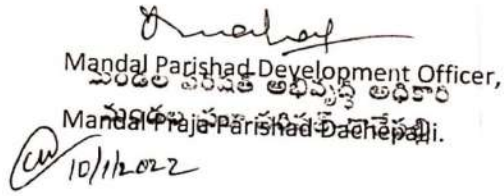 Mandal Parishad Development Officer,
మండల పరిషత్ అభివృద్ధి అధికారి
Mandal Praja Parishad Dachepalli.
మండల ప్రజా పరిషత్
10/1/2022